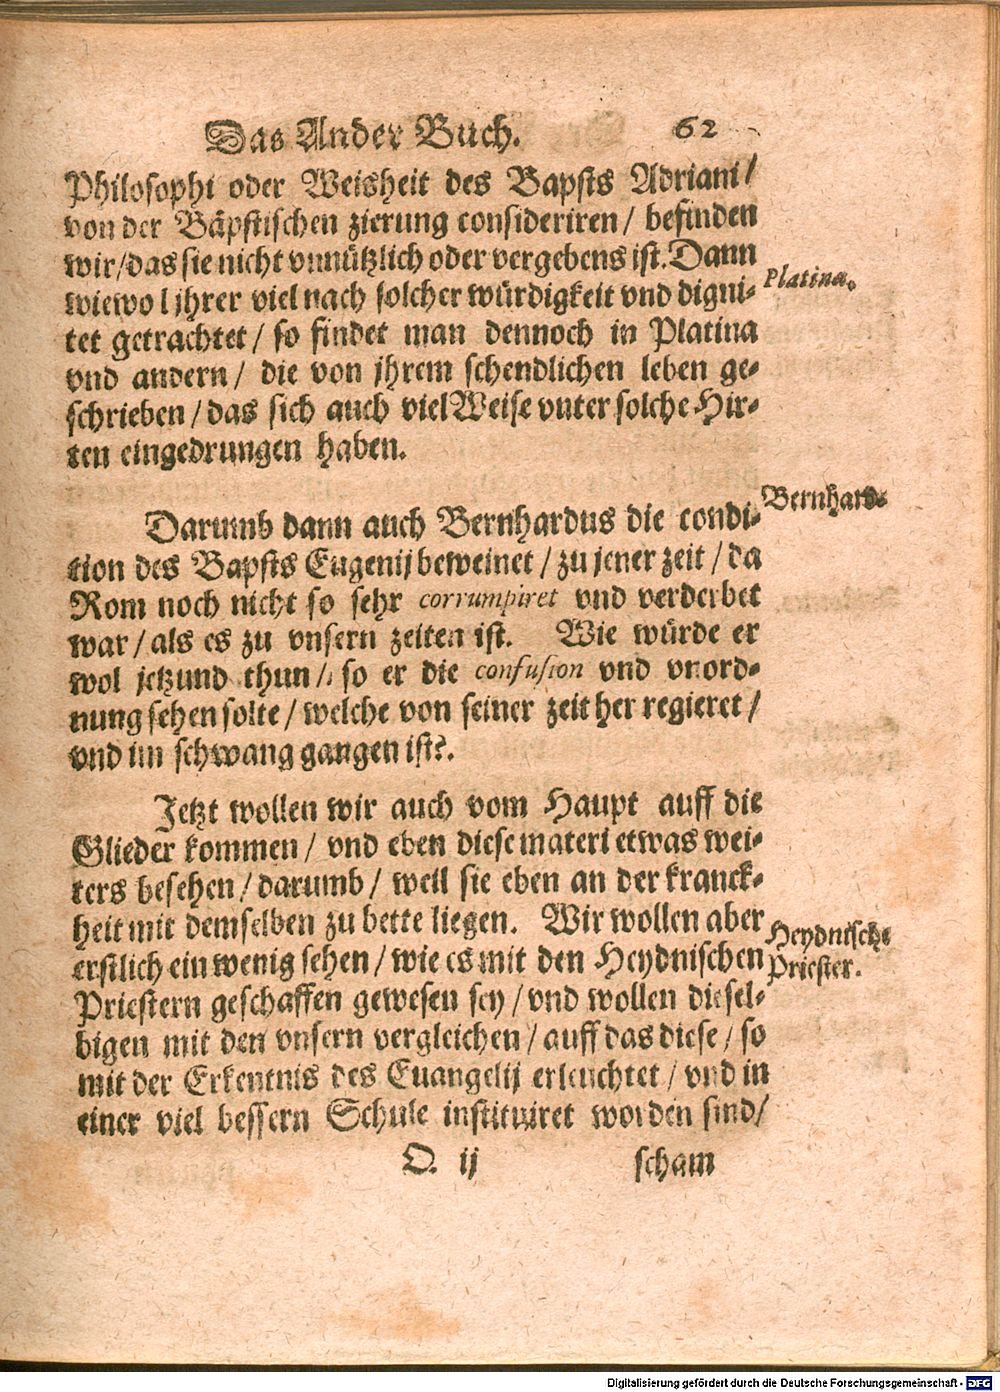 Das Ander Buch. 62
Philosophi oder Weisheit des Bapsts Adriani/
von der Bäpstischen zierung consideriren/ befinden
wir/das sie nicht vnnützlich oder vergebens ist. Dann
wiewol jhrer viel nach solcher würdigkeit vnd digni-
Platina.
tet getrachtet/ so findet man dennoch in Platina
vnd andern/ die von jhrem schendlichen leben ge-
schrieben/das sich auch viel Weise vnter solche Hir-
ten eingedrungen haben.
Darumb dann auch Bernhardus die condi-
Bernhard-
tion des Bapsts Eugenij beweinet/ zu jener zeit/ da
Rom noch nicht so sehr corrumpiret vnd verderbet
war/als es zu vnsern zeiten ist. Wie würde er
wol jetzund thun/ so er die confusion vnd vnord-
nung sehen solte/welche von seiner zeit her regieret/
vnd im schwang gangen ist?.
Jetzt wollen wir auch vom Haupt auff die
Glieder kommen/ vnd eben diese materi etwas wei-
ters besehen/darumb/ weil sie eben an der kranck-
heit mit demselben zu bette liegen. Wir wollen aber
Heydnische
erstlich ein wenig sehen/wie es mit den Heydnischen
Priester.
Priestern geschaffen gewesen sey/vnd wollen diesel-
bigen mit den vnsern vergleichen/auff das diese/so
mit der Erkentnis des Euangelij erleuchtet/vnd in
einer viel bessern Schule instituiret worden sind/
O. ij scham
Digitalisierung gefördert durch die Deutsche Forschungsgemeinschaft - DFG